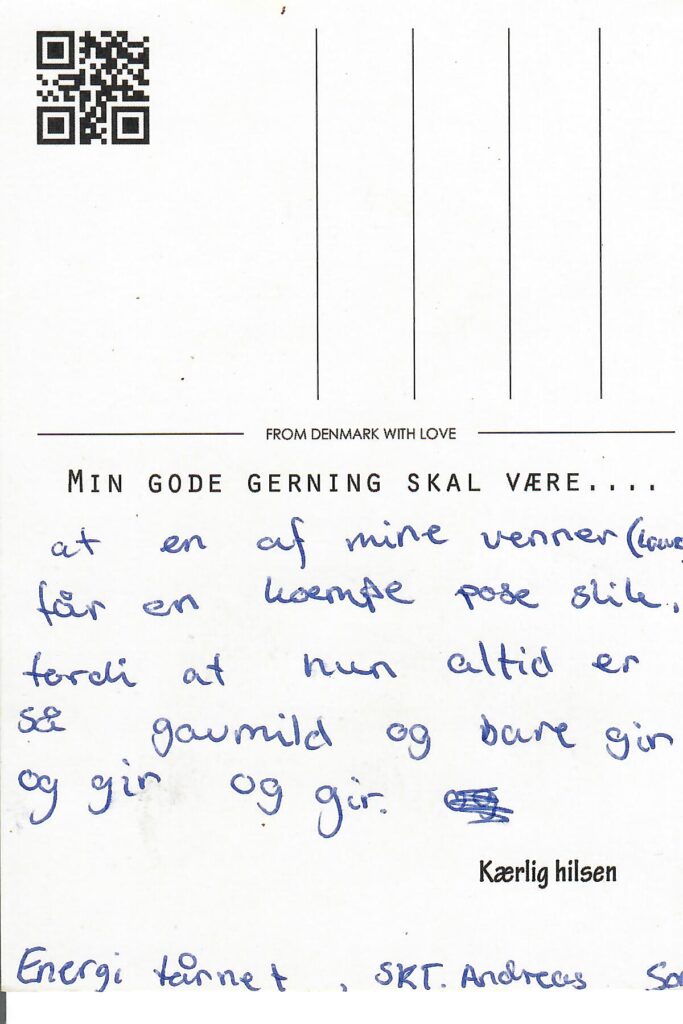 FROM DENMARK WITH LOVE
MIN GODE GERNING SKAL VÆRE....
at en af mine venner
får en kæmpe pose slik,
fordi at hun altid er
så gavmild og bare gir
og gir og gir.
Kærlig hilsen
Energi tårnet, SKT. Andreas